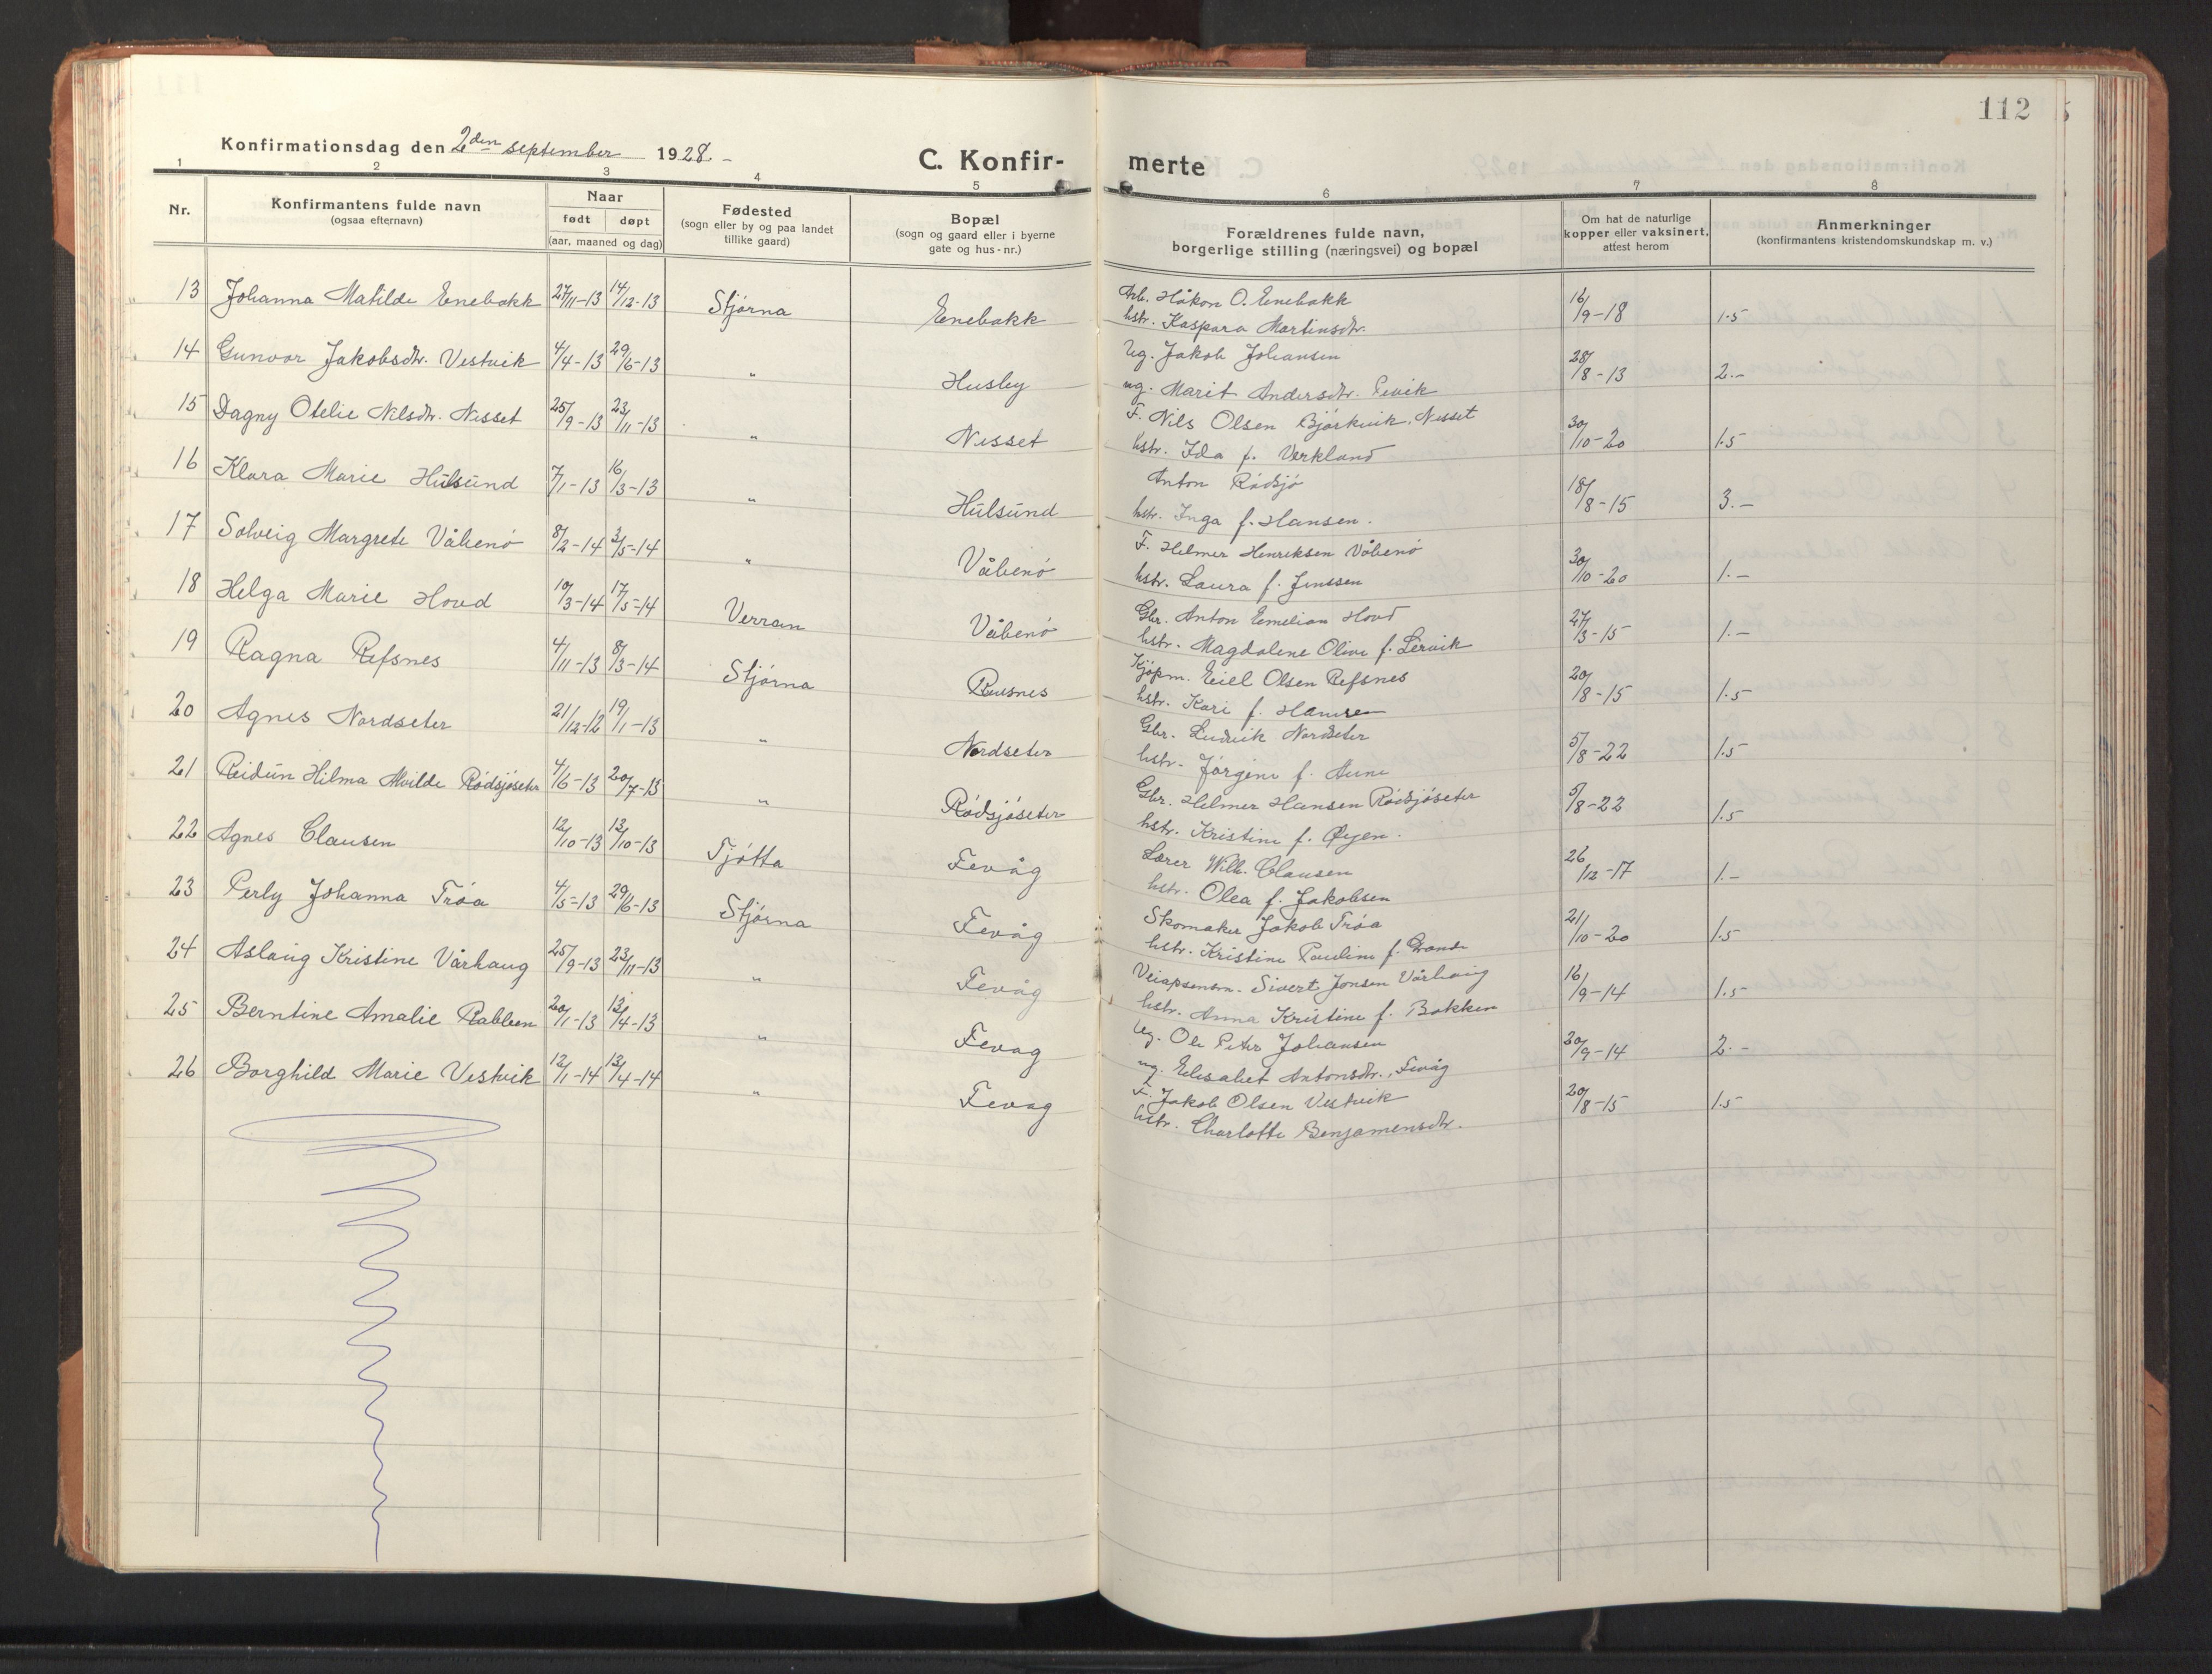 112
Konfirmationsdag den 2den september 1928. –
C. Konfir- merte
1 2 3 4 5 6 7 8
Nr.
Konfirmantens fulde navn
(ogsaa efternavn)
Naar
født døpt
(aar, maaned og dag)
Fødested
(sogn eller by og paa landet
tillike gaard)
Bopæl
(sogn og gaard eller i byerne
gate og hus-nr.)
Forældrenes fulde navn,
borgerlige stilling (næringsvei) og bopæl
Om hat de naturlige
kopper eller vaksinert,
attest herom
Anmerkninger
(konfirmantens kristendomskundskap m. v.)
13 Johanna Matilde Enebakk 27/11-13 14/12-13 Stjørna Enebakk Arb. Håkon O. Enebakk 16/9-18 1.5
hstr. Kaspara Martinsdtr.
14 Gunvor Jakobsdtr. Vestvik 4/4-13 29/6-13 " Husby Ug. Jakob Johansen 28/8-13 2.–
ug. Marit Andersdtr.
15 Dagny Otelie Nilsdtr. Nesset 25/9-13 23/11-13 " Nesset F. Nils Olsen Bjørkvik, Nesset 30/10-20 1.5
hstr. Ida f. Verkland
16 Klara Marie Hulsund 7/1-13 16/3-13 " Hulsund Anton Rødsjø 18/8-15 3.–
hstr. Inga f. Hansen.
17 Solveig Margrete Våbenø 8/2-14 3/5-14 " Våbenø F. Helmer Henriksen Våbenø 30/10-20 1.–
hstr. Laura f. Jenssen
18 Helga Marie Hovd 10/3-14 17/5-14 Verran Våbenø Gbr. Anton Emelian Hovd 27/3-15 1.–
hstr. Magdalene Oline f. Lervik
19 Ragna Refsnes 4/11-13 8/3-14 Stjørna Reusnes Kjøpm. Eiel Olsen Refsnes 20/8-15 1.5
hstr. Kari f. Hansen
20 Agnes Nordseter 21/12-12 19/1-13 " Nordseter Gbr. Ludvik Nordseter 5/8-22 1.5
hstr. Jørgine f. Aune
21 Reidun Hilma Alvilde Rødsjøseter 4/6-13 20/7-13 " Rødsjøseter Gbr. Helmer Hansen Rødsjøseter 5/8-22 1.5
hstr. Kristine f. Øyen.
22 Agnes Clausen 12/10-13 13/10-13 Tjøtta Fevåg Lærer Wilh. Clausen 26/12-17 1.–
hstr. Olea f. Jakobsen
23 Perly Johanna Trøa 4/5-13 29/6-13 Stjørna Fevåg Skomaker Jakob Trøa 21/10-20 1.5
hstr. Kristine Pauline f. Grande
24 Aslaug Kristine Vårhaug 25/9-13 23/11-13 " Fevåg Veiopsensm. Sivert Jonsen Vårhaug 16/9-14 1.5
hstr. Anna Kristine f. Bakken
25 Berntine Amalie Rabben 20/1-13 13/4-13 " Fevag Ug. Ole Peter Johansen 20/9-14 2.–
ug. Elisabet Antonsdtr., Fevåg
26 Borghild Marie Vestvik 12/1-14 13/4-14 " Fevag F. Jakob Olsen Vestvik 20/8-15 1.5
hstr. Charlotte Benjamensdtr.